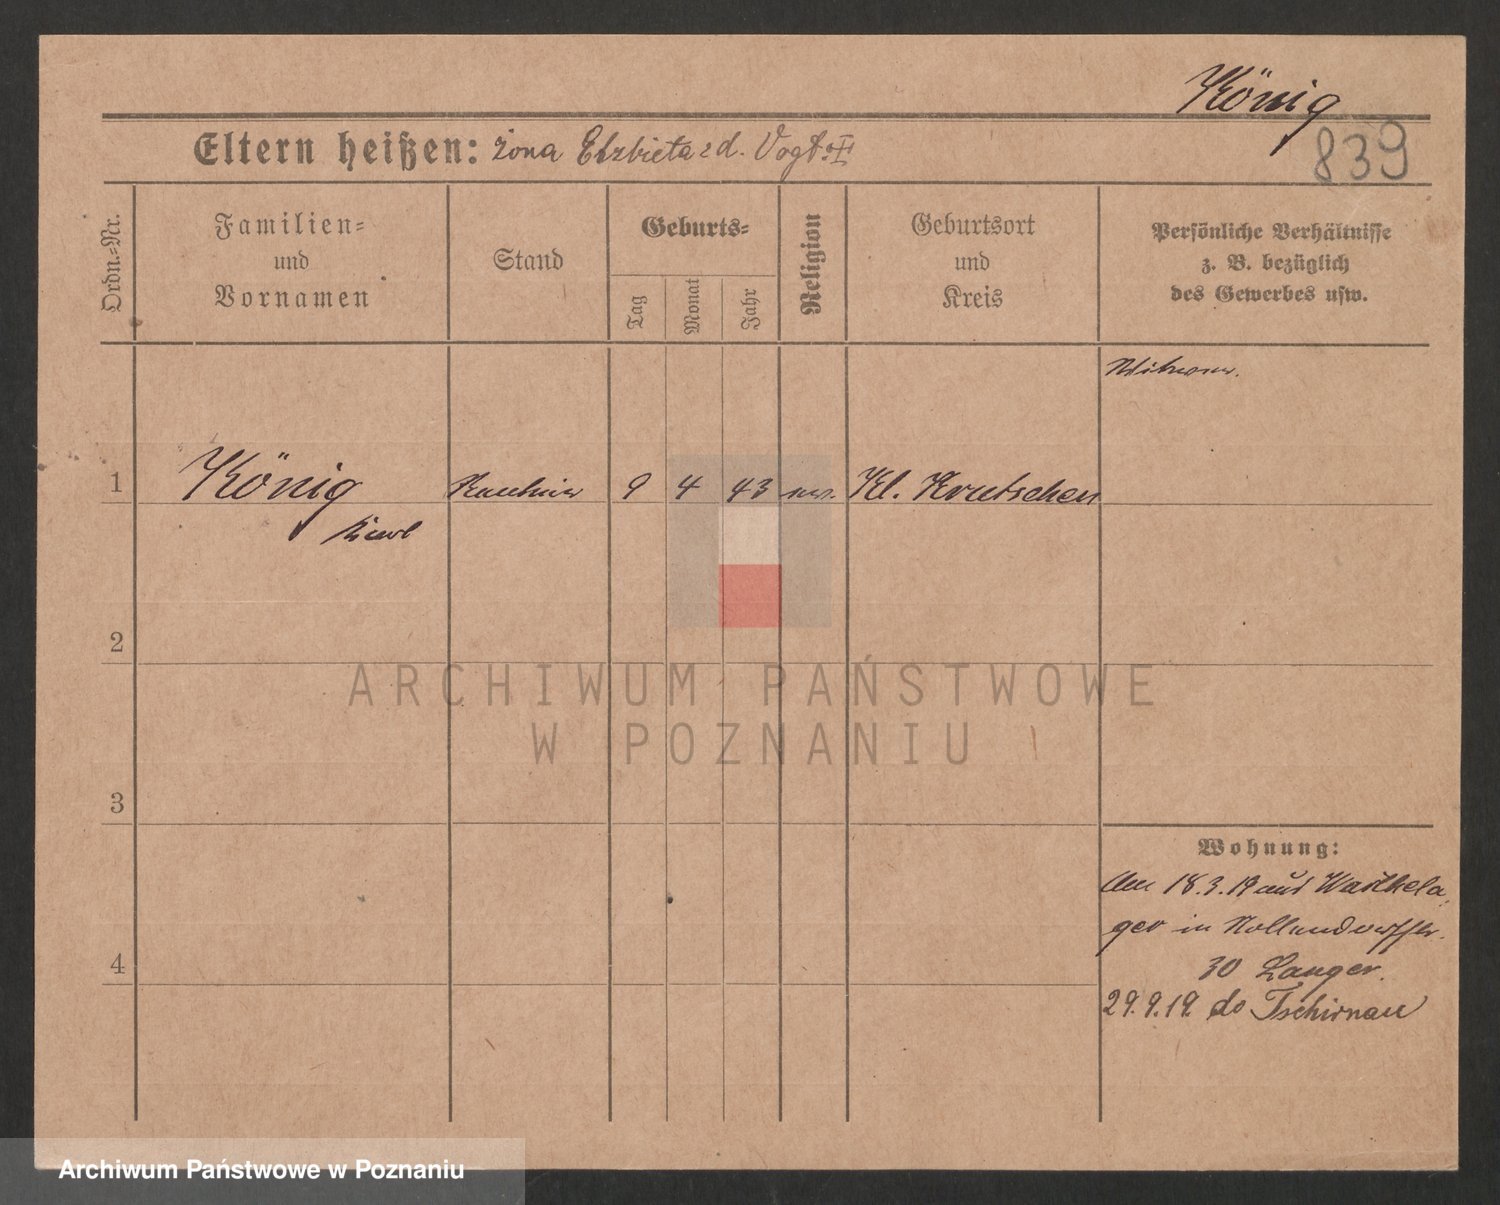 König
839
Eltern heißen: żona Elzbieta z d. Vogt
Ordn.-Nr.
Familien-
und
Vornamen
Stand
Geburts-
Tag
Monat
Jahr
Religion
Geburtsort
und
Kreis
Persönliche Verhältnisse
z. B. bezüglich
des Gewerbes usw.
1
König
Karl
Rentner
9
4
43
ev.
Kl. Krutschen
2
3
4
Wohnung:
Am 18.3.19 aus
ger in Nollendorffstr.
30 Langer.
29.9.19. do Tschirnau
ARCHIWUM PAŃSTWOWE
W POZNANIU
Archiwum Państwowe w Poznaniu